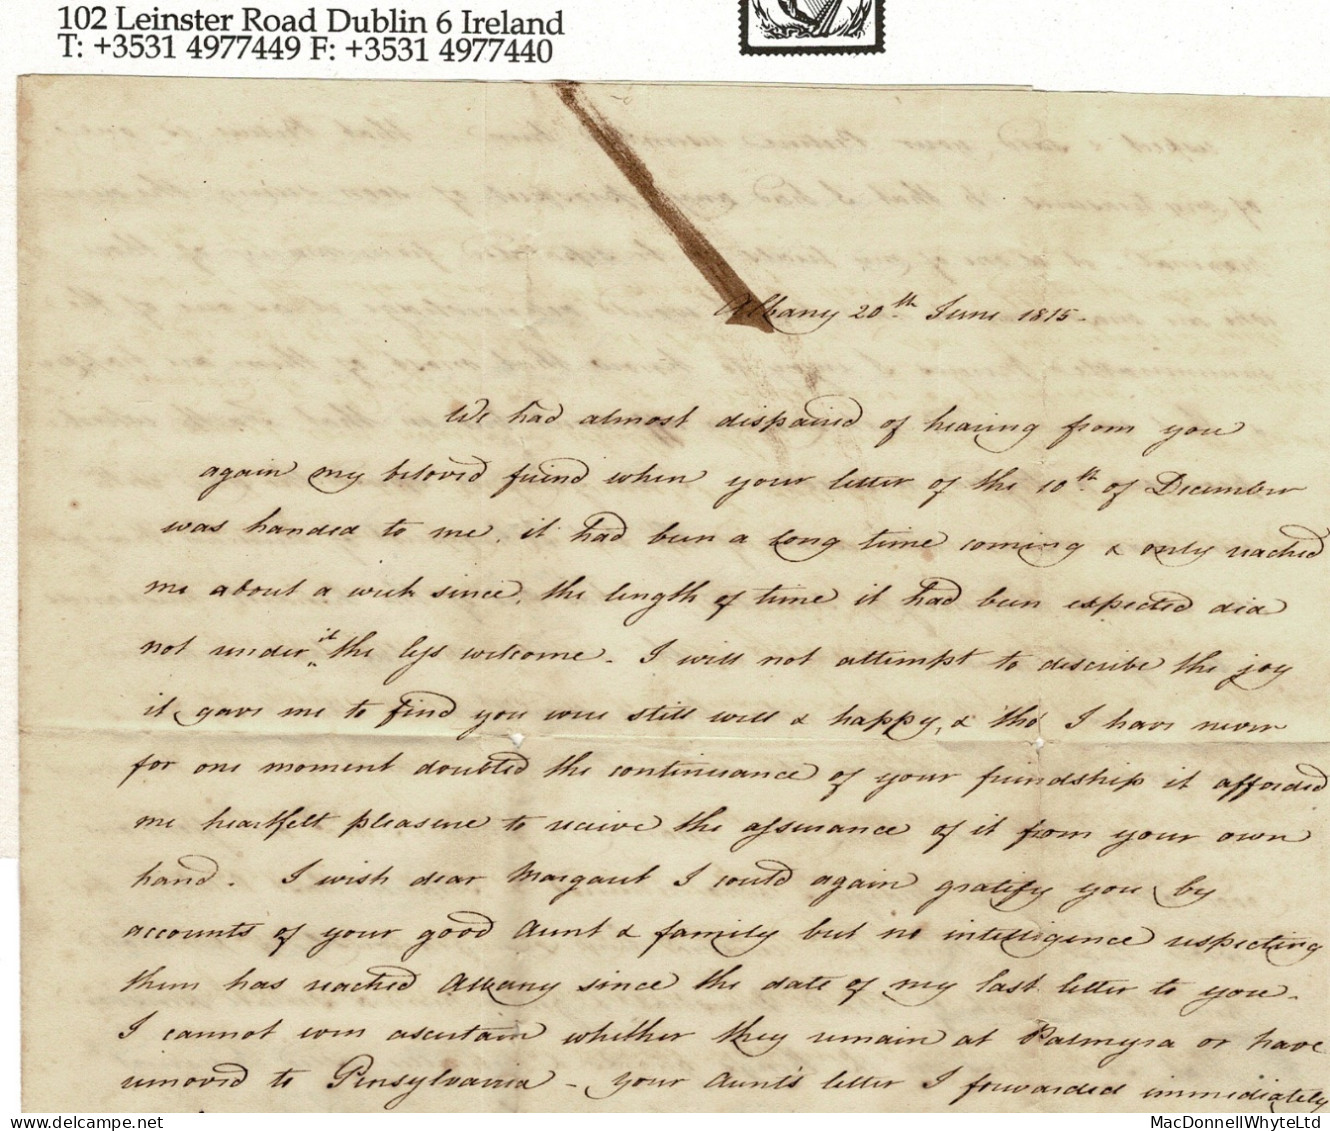 102 Leinster Road Dublin 6 Ireland
T: +3531 4977449 F: +3531 4977440
Albany 20th June 1815.
We had almost dispaired of hearing from you
again my beloved friend when your letter of the 10th of December
was handed to me. it had been a long time coming & only reached
me about a week since. the length of time it had been expected did
not render it the less welcome. I will not attempt to describe the joy
it gave me to find you were still well & happy, & tho' I have never
for one moment doubted the continuance of your friendship it afforded
me heartfelt pleasure to receive the assurance of it from your own
hand. I wish dear Margaret I could again gratify you by
accounts of your good Aunt & family but no intelligence respecting
them has reached Albany since the date of my last letter to you.
I cannot even ascertain whether they remain at Palmyra or have
removed to Pensylvania - your Aunt's letter I forwarded immediately
MacDonnellWhyteLtd